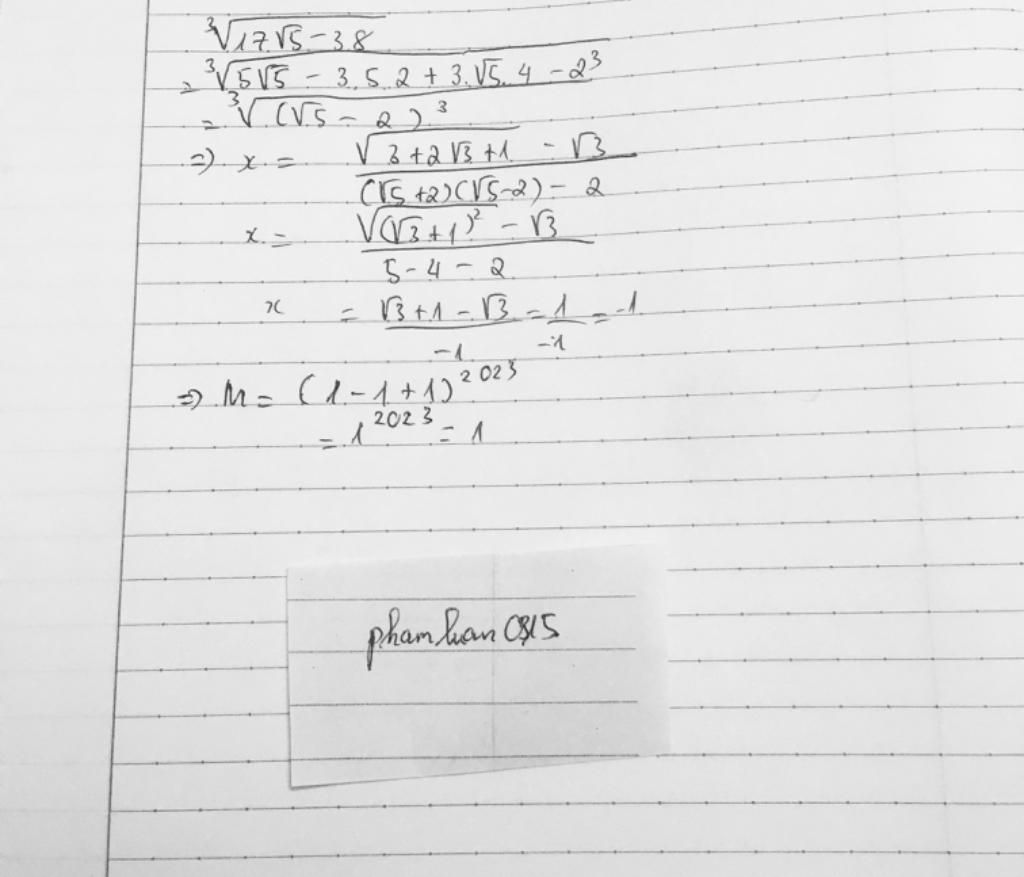 ∛17√5 - 38
= ∛5√5 - 3.5.2 + 3.√5.4 - 2³
= ∛(√5 - 2)³
=> x = (√3+2√3+1 - √3) / ((√5+2)(√5-2) - 2)
x = (√(√3+1)² - √3) / (5 - 4 - 2)
x = (√3+1-√3) / -1 = 1 / -1 = -1
=> M = (1 - 1 + 1)²⁰²³
= 1²⁰²³ = 1